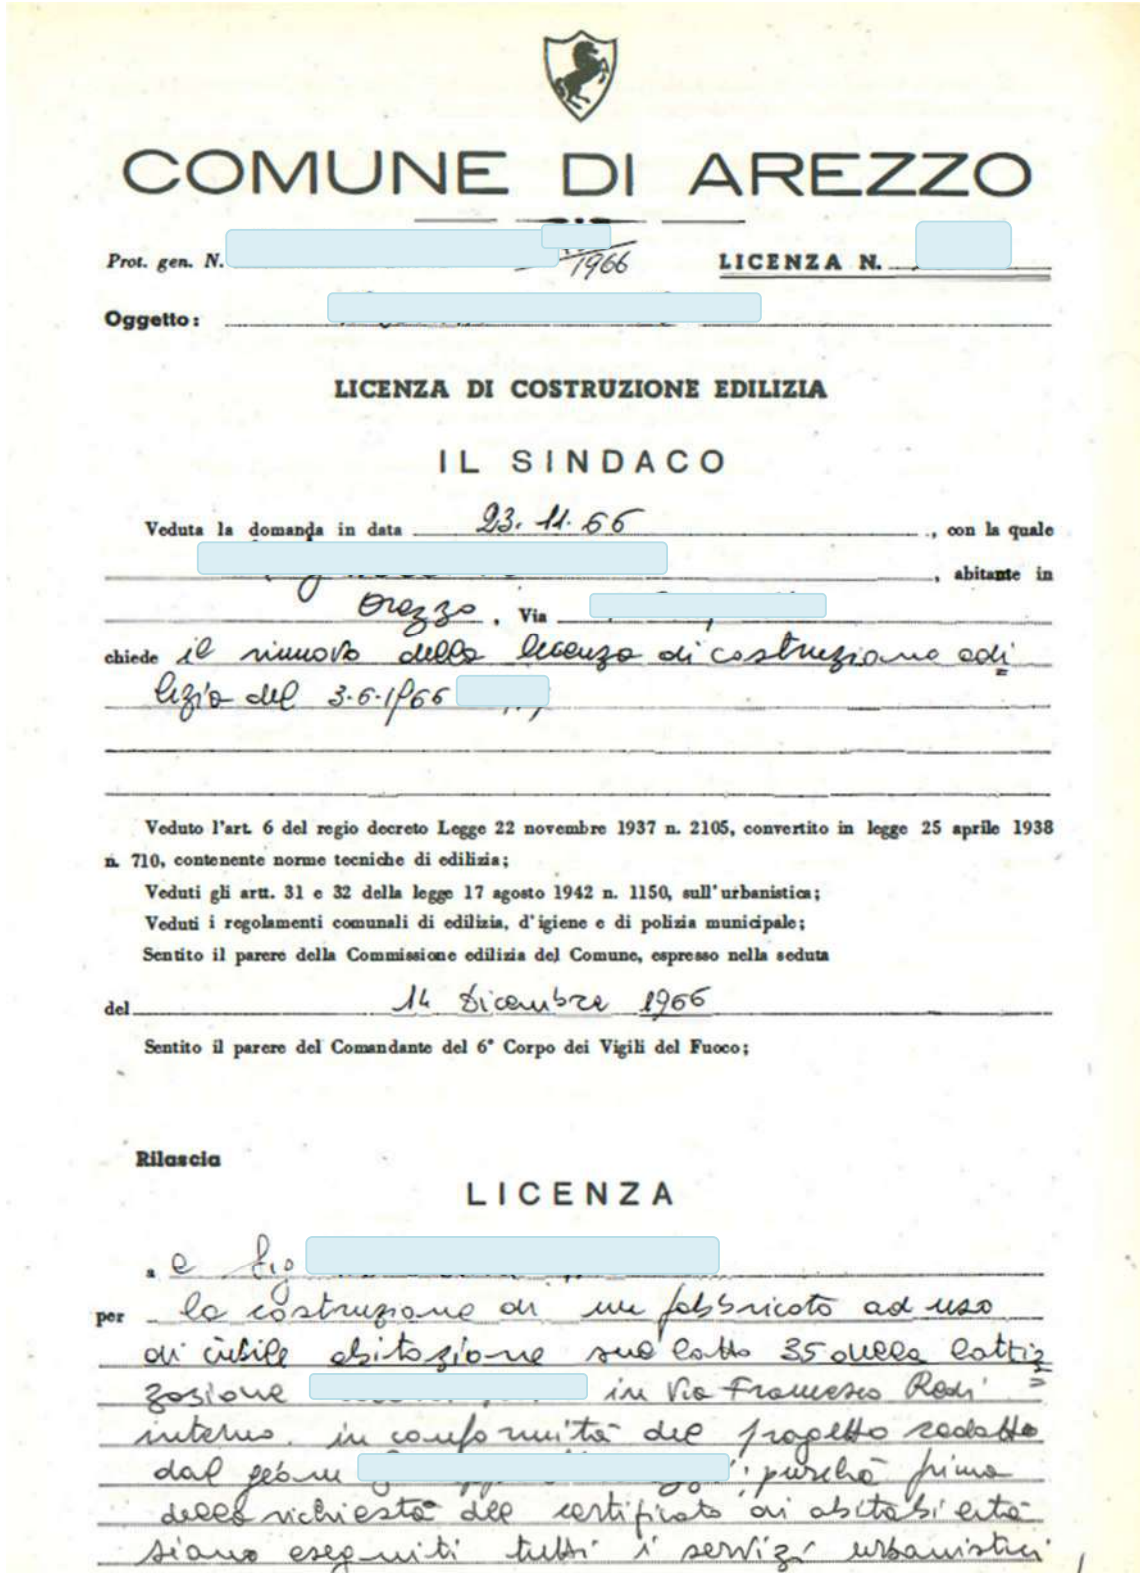 COMUNE DI AREZZO
Prot. gen. N. 1966 LICENZA N.
Oggetto:
LICENZA DI COSTRUZIONE EDILIZIA
IL SINDACO
Veduta la domanda in data 23.11.66, con la quale
, abitante in
Arezzo, Via
chiede il rinnovo della licenza di costruzione edi=
lizia del 3-6-1966
Veduto l'art. 6 del regio decreto Legge 22 novembre 1937 n. 2105, convertito in legge 25 aprile 1938
n. 710, contenente norme tecniche di edilizia;
Veduti gli artt. 31 e 32 della legge 17 agosto 1942 n. 1150, sull'urbanistica;
Veduti i regolamenti comunali di edilizia, d'igiene e di polizia municipale;
Sentito il parere della Commissione edilizia del Comune, espresso nella seduta
del 14 Dicembre 1966
Sentito il parere del Comandante del 6° Corpo dei Vigili del Fuoco;
Rilascia
LICENZA
a
per la costruzione di un fabbricato ad uso
di civile abitazione sul lotto 35 della lottiz=
zazione in Via Francesco Redi
interno. in conformità del progetto redatto
dal geom purchè prima
della richiesta del certificato di abitabilità
siano eseguiti tutti i servizi urbanistici